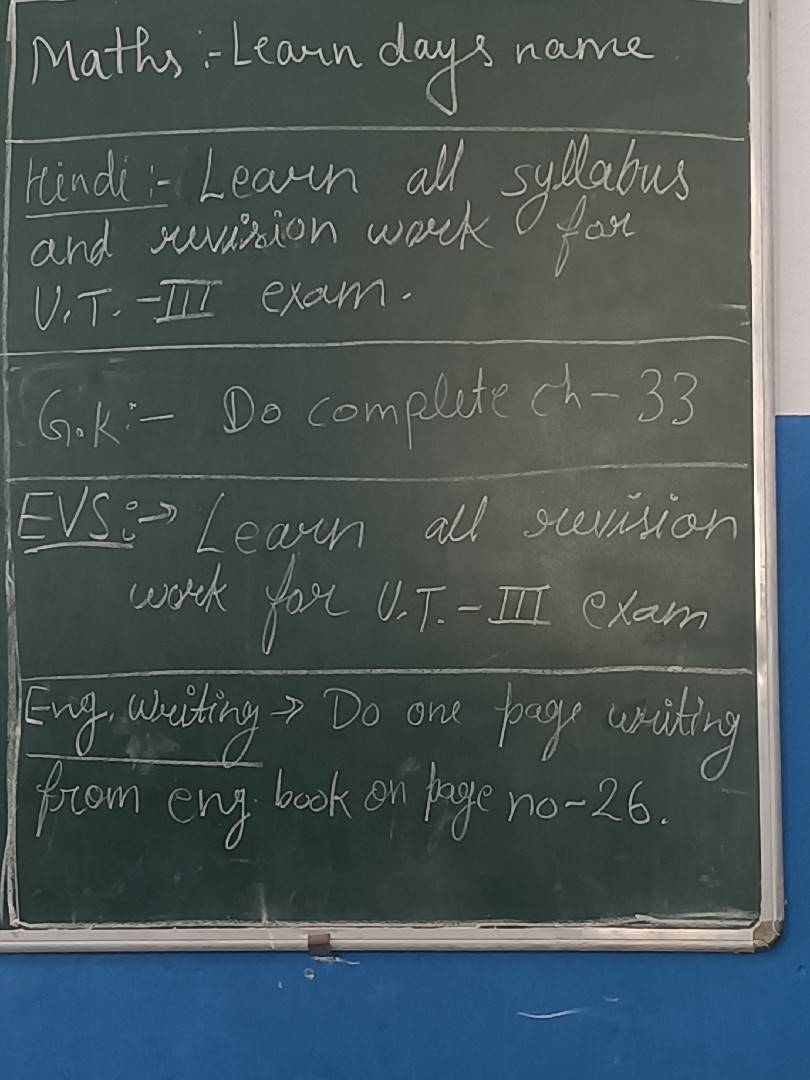 Maths :- Learn days name
Hindi :- Learn all syllabus
and revision work for
U.T. -III exam.
G.K :- Do complete ch- 33
EVS :-> Learn all revision
work for U.T. - III exam
Eng. writing -> Do one page writing
from eng. book on page no-26.